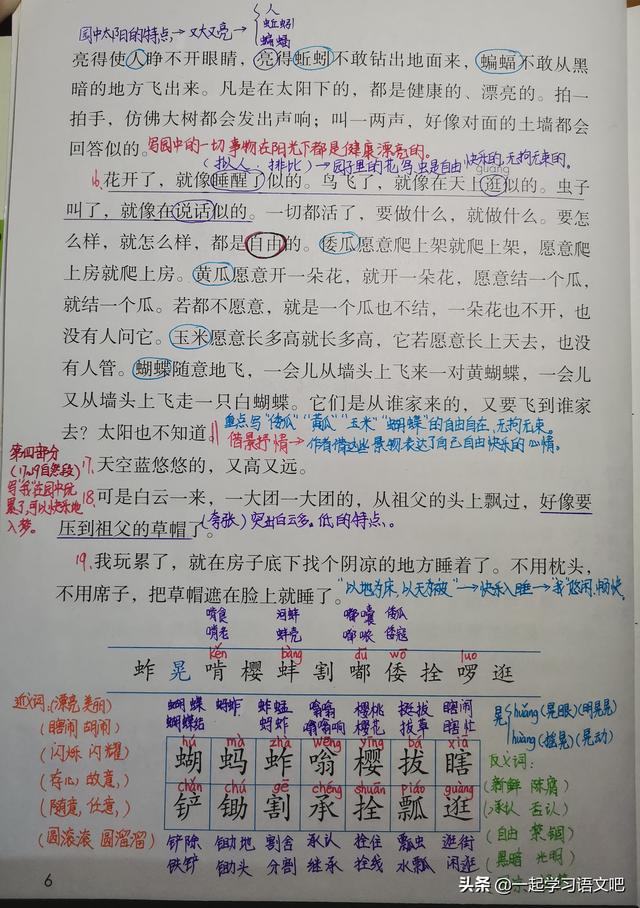 园中太阳的特点,→又大又亮→
人
蚯蚓
蝙蝠
亮得使人睁不开眼睛,亮得蚯蚓不敢钻出地面来,蝙蝠不敢从黑
暗的地方飞出来。凡是在太阳下的,都是健康的、漂亮的。拍一
拍手,仿佛大树都会发出声响;叫一两声,好像对面的土墙都会
回答似的。
写园中的一切事物在阳光下都是健康漂亮的。
(拟人、排比)→园子里的花鸟虫是自由快乐的,无拘无束的。
guang
16.花开了,就像睡醒了似的。鸟飞了,就像在天上逛似的。虫子
叫了,就像在说话似的。一切都活了,要做什么,就做什么。要怎
么样,就怎么样,都是自由的。倭瓜愿意爬上架就爬上架,愿意爬
上房就爬上房。黄瓜愿意开一朵花,就开一朵花,愿意结一个瓜,
就结一个瓜。若都不愿意,就是一个瓜也不结,一朵花也不开,也
没有人问它。玉米愿意长多高就长多高,它若愿意长上天去,也没
有人管。蝴蝶随意地飞,一会儿从墙头上飞来一对黄蝴蝶,一会儿
又从墙头上飞走一只白蝴蝶。它们是从谁家来的,又要飞到谁家
去?太阳也不知道。
重点写"倭瓜""黄瓜""玉米""蝴蝶"的自由自在,无拘无束。
借景抒情→作者借这些景物表达了自己自由快乐的心情。
第四部分
(17~19自然段)
写"我"在园中玩
累了,可以快乐地
入梦。
17.天空蓝悠悠的,又高又远。
18.可是白云一来,一大团一大团的,从祖父的头上飘过,好像要
压到祖父的草帽了。
(夸张)突出白云多、低的特点。
19.我玩累了,就在房子底下找个阴凉的地方睡着了。不用枕头,
不用席子,把草帽遮在脸上就睡了。
"以地为床,以天为被"→快乐入睡→"我"悠闲、畅快。
啃食 河蚌 嘟囔 倭瓜
啃老 蚌壳 嘟哝 倭寇
kěn bàng dū wō luo
蚱 晃 啃 樱 蚌 割 嘟 倭 拴 啰 逛
蝴蝶 蚂蚱 蚱蜢 嗡嗡 樱桃 挺拔 瞎闹
蝴蝶结 蚂蚱 嗡嗡响 樱花 拔草 瞎忙
hú mà zhà wēng yīng bá xiā
蝴 蚂 蚱 嗡 樱 拔 瞎
chǎn chú gē chéng shuān piáo guàng
铲 锄 割 承 拴 瓢 逛
铲除 锄地 割舍 承认 拴住 瓢虫 逛街
铁铲 锄头 分割 继承 拴线 水瓢 闲逛
近义词:(漂亮 美丽)
(瞎闹 胡闹)
(闪烁 闪耀)
(存心,故意,)
(随意,任意,)
(圆滚滚 圆溜溜)
晃
huǎng(晃眼)(明晃晃)
huàng(摇晃)(晃动)
反义词:
(新鲜 陈腐)
(承认 否认)
(自由 禁锢)
(黑暗 光明)
6
头条 @一起学习语文吧